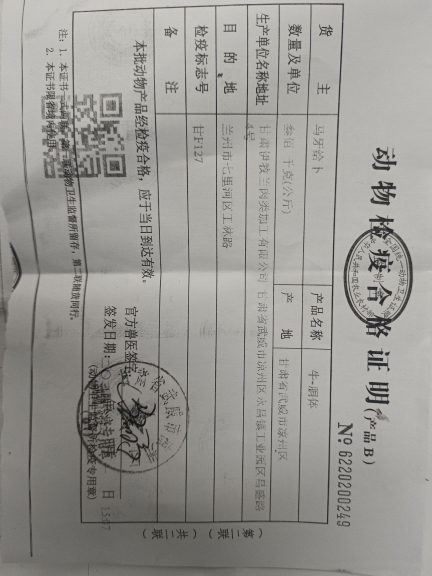 动物检疫合格证明(产品 B)
№ 6220200249
货 主 马牙洽卜 产品名称 牛-胴体
数量及单位 叁佰 千克(公斤) 产 地 甘肃省武威市凉州区
生产单位名称地址 甘肃伊牧兰肉类加工有限公司 甘肃省武威市凉州区永昌镇工业园区昌盛路
4号
目 的 地 兰州市七里河区工林路
检疫标志号 甘F127
备 注
本批动物产品经检疫合格,应于当日到达有效。
官方兽医签字:
签发日期: 日 15:07
(动物卫生监督所检疫专用章)
注:1. 本证书一式两联,第一联动物卫生监督所留存,第二联随货同行。
2. 本证书限省境内使用。
(第二联)
(共二联)